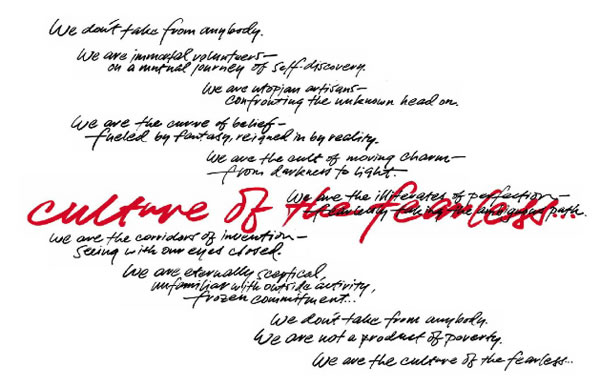 We don't take from anybody.
We are immortal volunteers—
on a mutual journey of self-discovery.
We are utopian artisans—
confronting the unknown head on.
We are the curve of belief—
fueled by fantasy, reigned in by reality.
We are the cult of moving charm—
from darkness to light.
We are the illiterates of perfection—
taking the path.
culture of the fearless...
We are the corridors of invention—
seeing with our eyes closed.
We are eternally sceptical,
unfamiliar with outside activity,
frozen commitment...
We don't take from anybody.
We are not a product of poverty.
We are the culture of the fearless...